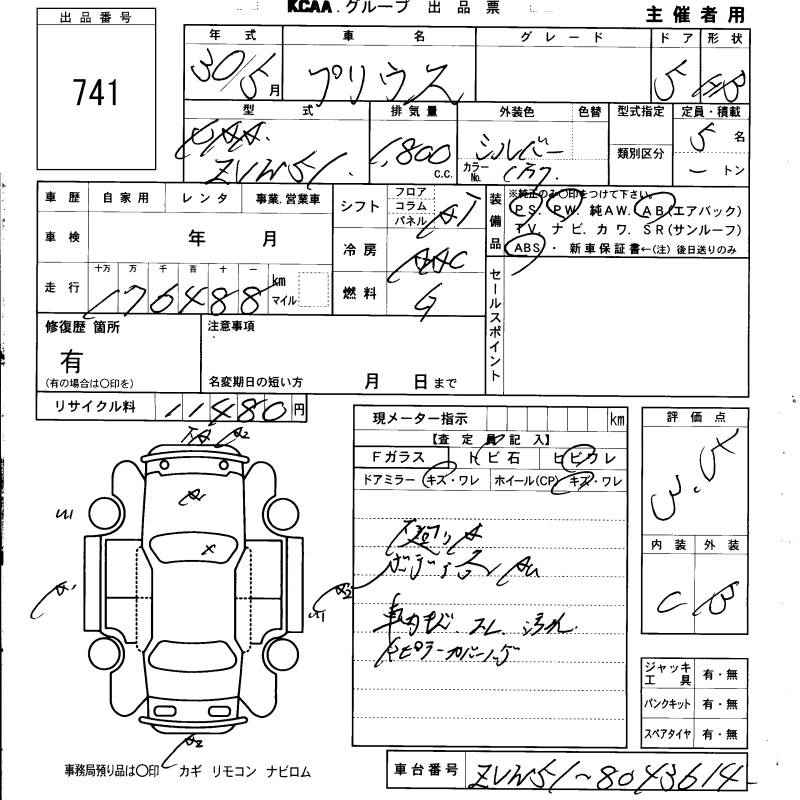 KCAA.グループ 出品票
主催者用
出品番号
741
年式 車名 グレード ドア 形状
30/5月 プリウス 5 HB
型式 排気量 外装色 色替 型式指定 定員・積載
DAA ZVW51 1,800 c.c. シルバー カラーNo. 1F7 類別区分 5名
ートン
車歴 自家用 レンタ 事業.営業車
車検 年 月
走行 十万 万 千 百 十 一 km マイル
176488
シフト フロア コラム パネル AT
冷房 AAC
燃料 G
装備品 ※純正のみ○印をつけて下さい。
PS. PW. 純AW. AB(エアバック)
TV. ナビ. カワ. SR(サンルーフ)
ABS ・ 新車保証書←(注)後日送りのみ
セールスポイント
修復歴 箇所
有
(有の場合は○印を)
注意事項
名変期日の短い方 月 日まで
リサイクル料 11480円
現メーター指示 km
【査定員記入】
Fガラス トビ石 ヒビワレ
ドアミラー キズ・ワレ ホイール(CP) キズ・ワレ
下廻りA
車内キズ.スレ.汚れ.
評価点
内装 外装
C B
A2
A1
X
A1
A2
A2
ジャッキ工具 有・無
パンクキット 有・無
スペアタイヤ 有・無
事務局預り品は○印 カギ リモコン ナビロム
車台番号 ZVW51-8043614